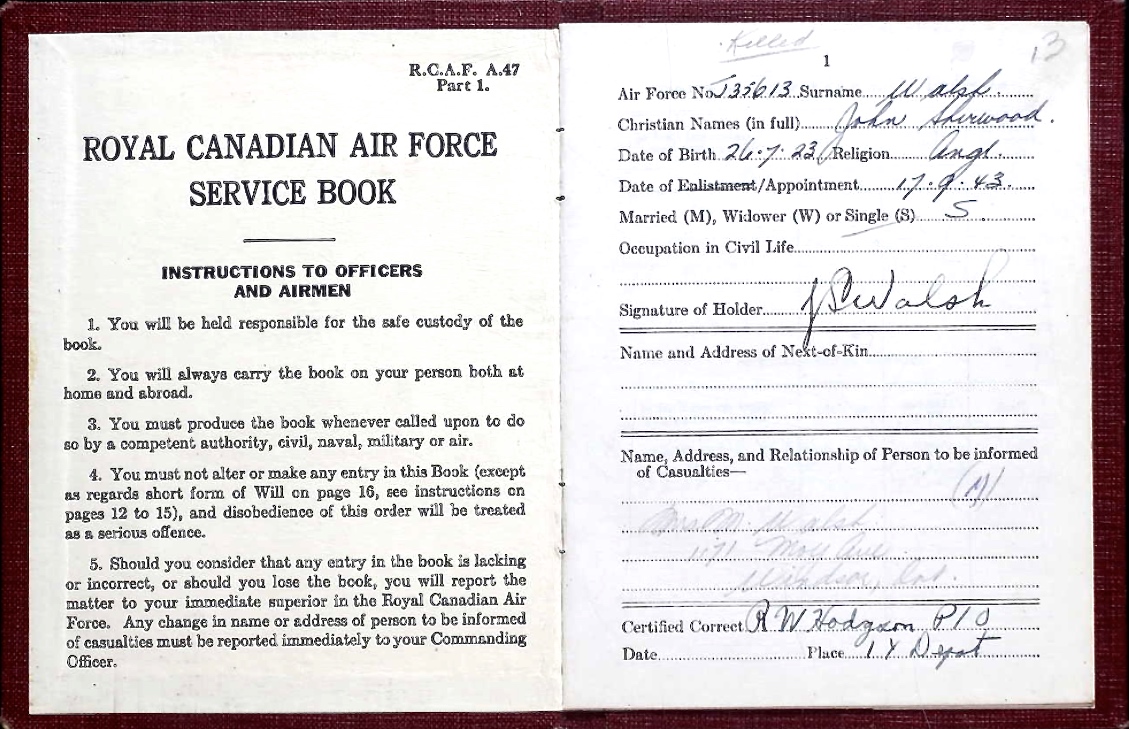 R.C.A.F. A.47
Part 1.
ROYAL CANADIAN AIR FORCE
SERVICE BOOK
INSTRUCTIONS TO OFFICERS
AND AIRMEN
1. You will be held responsible for the safe custody of the
book.
2. You will always carry the book on your person both at
home and abroad.
3. You must produce the book whenever called upon to do
so by a competent authority, civil, naval, military or air.
4. You must not alter or make any entry in this Book (except
as regards short form of Will on page 16, see instructions on
pages 12 to 15), and disobedience of this order will be treated
as a serious offence.
5. Should you consider that any entry in the book is lacking
or incorrect, or should you lose the book, you will report the
matter to your immediate superior in the Royal Canadian Air
Force. Any change in name or address of person to be informed
of casualties must be reported immediately to your Commanding
Officer.
Killed
1
13
Air Force No. J35613 Surname Walsh.
Christian Names (in full) John Sherwood.
Date of Birth 26.7.23 Religion Angl.
Date of Enlistment/Appointment 17.9.43.
Married (M), Widower (W) or Single (S) S.
Occupation in Civil Life
Signature of Holder JSWalsh
Name and Address of Next-of-Kin
Name, Address, and Relationship of Person to be informed
of Casualties—
(M)
Mrs. M. Walsh
Ave
Windsor, Ont.
Certified Correct R W Hodgson P/O
Date Place 1Y Depot